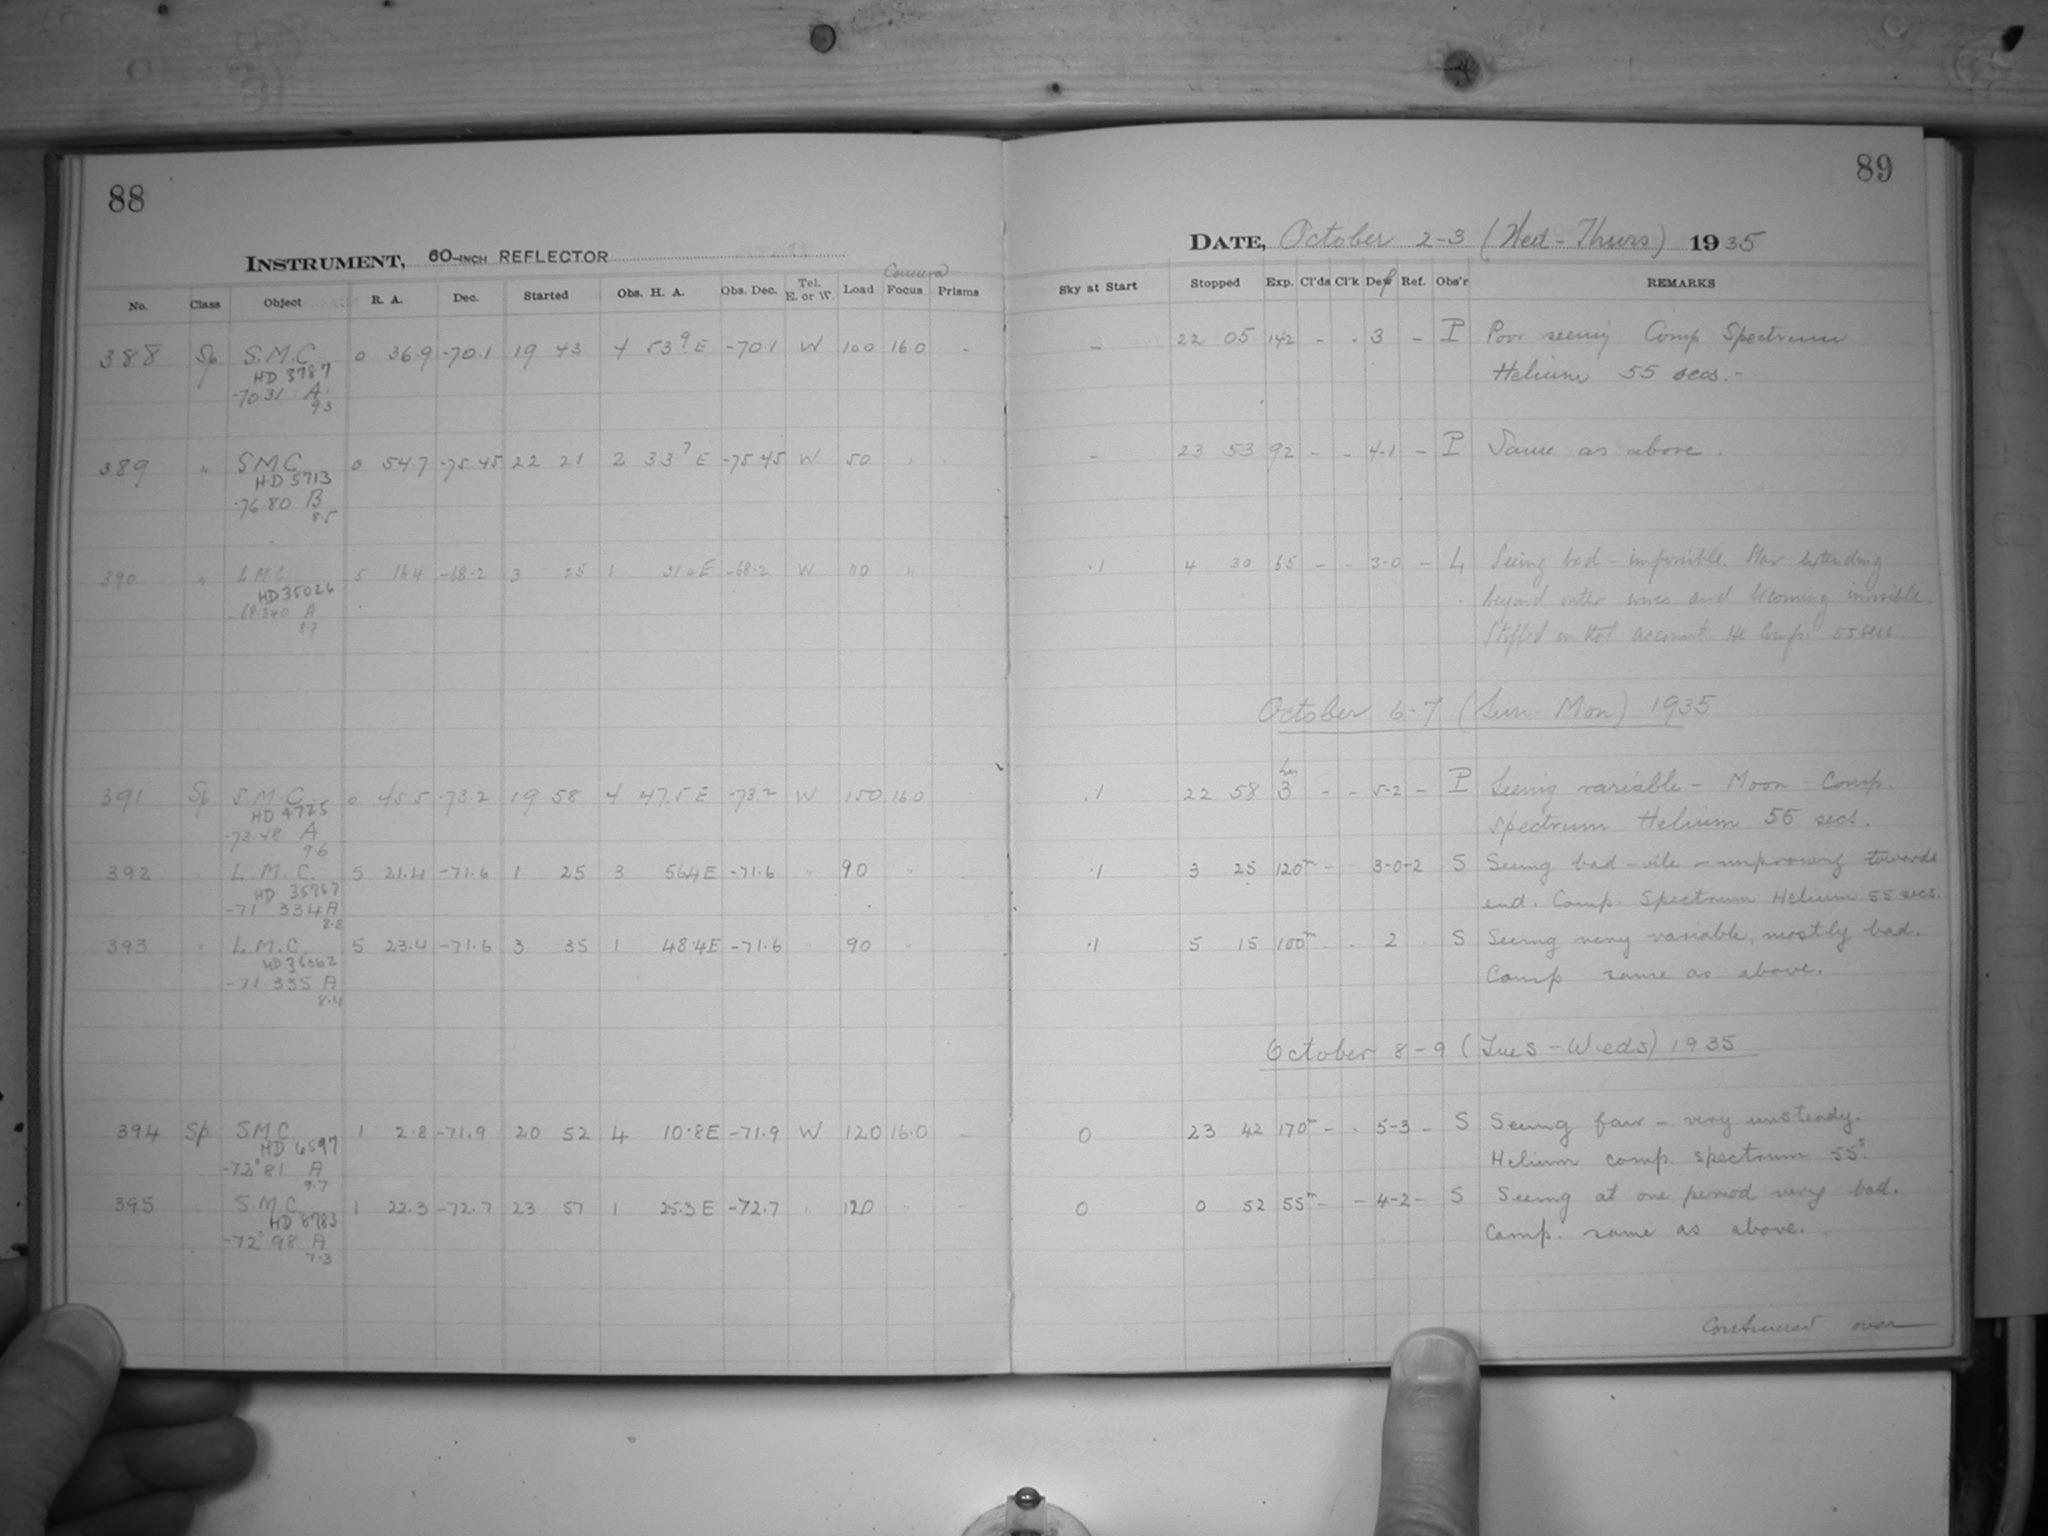 88
INSTRUMENT, 60-INCH REFLECTOR
Camera
No. Class Object R. A. Dec. Started Obs. H. A. Obs. Dec. Tel. E. or W. Load Focus Prisms
388 Sp S.M.C. 0 36.9 -70.1 19 43 4 53.9 E -70.1 W 100 16.0 -
HD 3787
-70 31 A
9.3
389 " SMC 0 54.7 -75.45 22 21 2 33.7 E -75.45 W 50 "
HD 5713
-76 80 B
8.5
390 " L.M.C. 5 16.4 -68.2 3 25 1 E -68.2 W 110 "
HD 35026
-68.340 A
8.7
391 Sp S.M.C. 0 45.5 -73.2 19 58 4 47.5 E -73.2 W 150 16.0
HD 4725
-73.48 A
9.6
392 " L.M.C. 5 21.4 -71.6 1 25 3 56.4 E -71.6 " 90 "
HD 35767
-71 334 A
8.8
393 " L.M.C. 5 23.4 -71.6 3 35 1 48.4 E -71.6 " 90 "
HD 36062
-71 335 A
8.4
394 Sp S.M.C. 1 2.8 -71.9 20 52 4 10.8 E -71.9 W 120 16.0 -
HD 6597
-72° 81 A
9.7
395 " S.M.C. 1 22.3 -72.7 23 57 1 25.3 E -72.7 " 120 " -
HD 8783
-72° 98 A
7.3
89
DATE, October 2-3 (Wed-Thurs) 1935
Sky at Start Stopped Exp. Cl'ds Cl'k Def Ref. Obs'r REMARKS
- 22 05 142 - - 3 - P Poor seeing Comp Spectrum
Helium 55 secs. -
- 23 53 92 - - 4-1 - P Same as above.
.1 4 30 65 - - 3-0 - L Seeing bad - impossible. Star extending
beyond outer wires and becoming invisible
Stopped on that account. He Comp. 55 secs.
October 6-7 (Sun-Mon) 1935
.1 22 58 3 hrs - - 5-2 - P Seeing variable - Moon - Comp.
spectrum Helium 55 secs.
.1 3 25 120m - - 3-0-2 S Seeing bad - vile - improving towards
end. Comp. Spectrum Helium 55 secs.
.1 5 15 100m - - 2 S Seeing very variable, mostly bad.
Comp same as above.
October 8-9 (Tues-Weds) 1935
0 23 42 170m - - 5-3 - S Seeing fair - very unsteady.
Helium comp. spectrum 55s.
0 0 52 55m - - 4-2 - S Seeing at one period very bad.
Comp. same as above.
Continued over